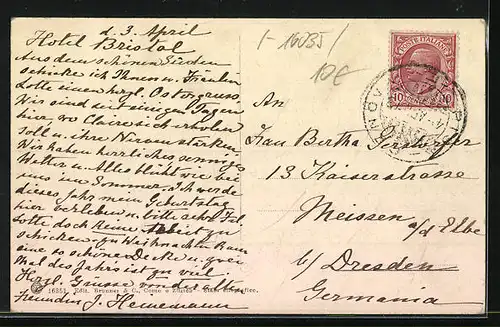 d. 3. April
Hotel Bristol
Aus dem schönen Süden
schicke ich Ihnen u. Fräulein
Lotte einen herzl. Ostergruss.
Wir sind seit einigen Tagen
hier, wo Claire sich erholen
soll u. ihre Nerven stärken.
Wir haben herrliches sonniges
Wetter u. Alles blüht wie bei
uns im Sommer. Ich werde
dieses Jahr mein Geburtstag
hier verleben u. bitte sehr Frl.
Lotte doch keine zu
schicken. Zu Weihnachten kam
eine so schöne Decke u. zwei
Mal des Jahrs ist zu viel.
Herzl. Grüsse von der alten
Freundin J. Heinemann
16351 Edit. Brunner & C., Como e Zürich
I-16035/
10€
POSTE ITALIANE
10 10
An
Frau Bertha
13 Kaiserstrasse
Meissen
a/d Elbe
b/ Dresden
Germania